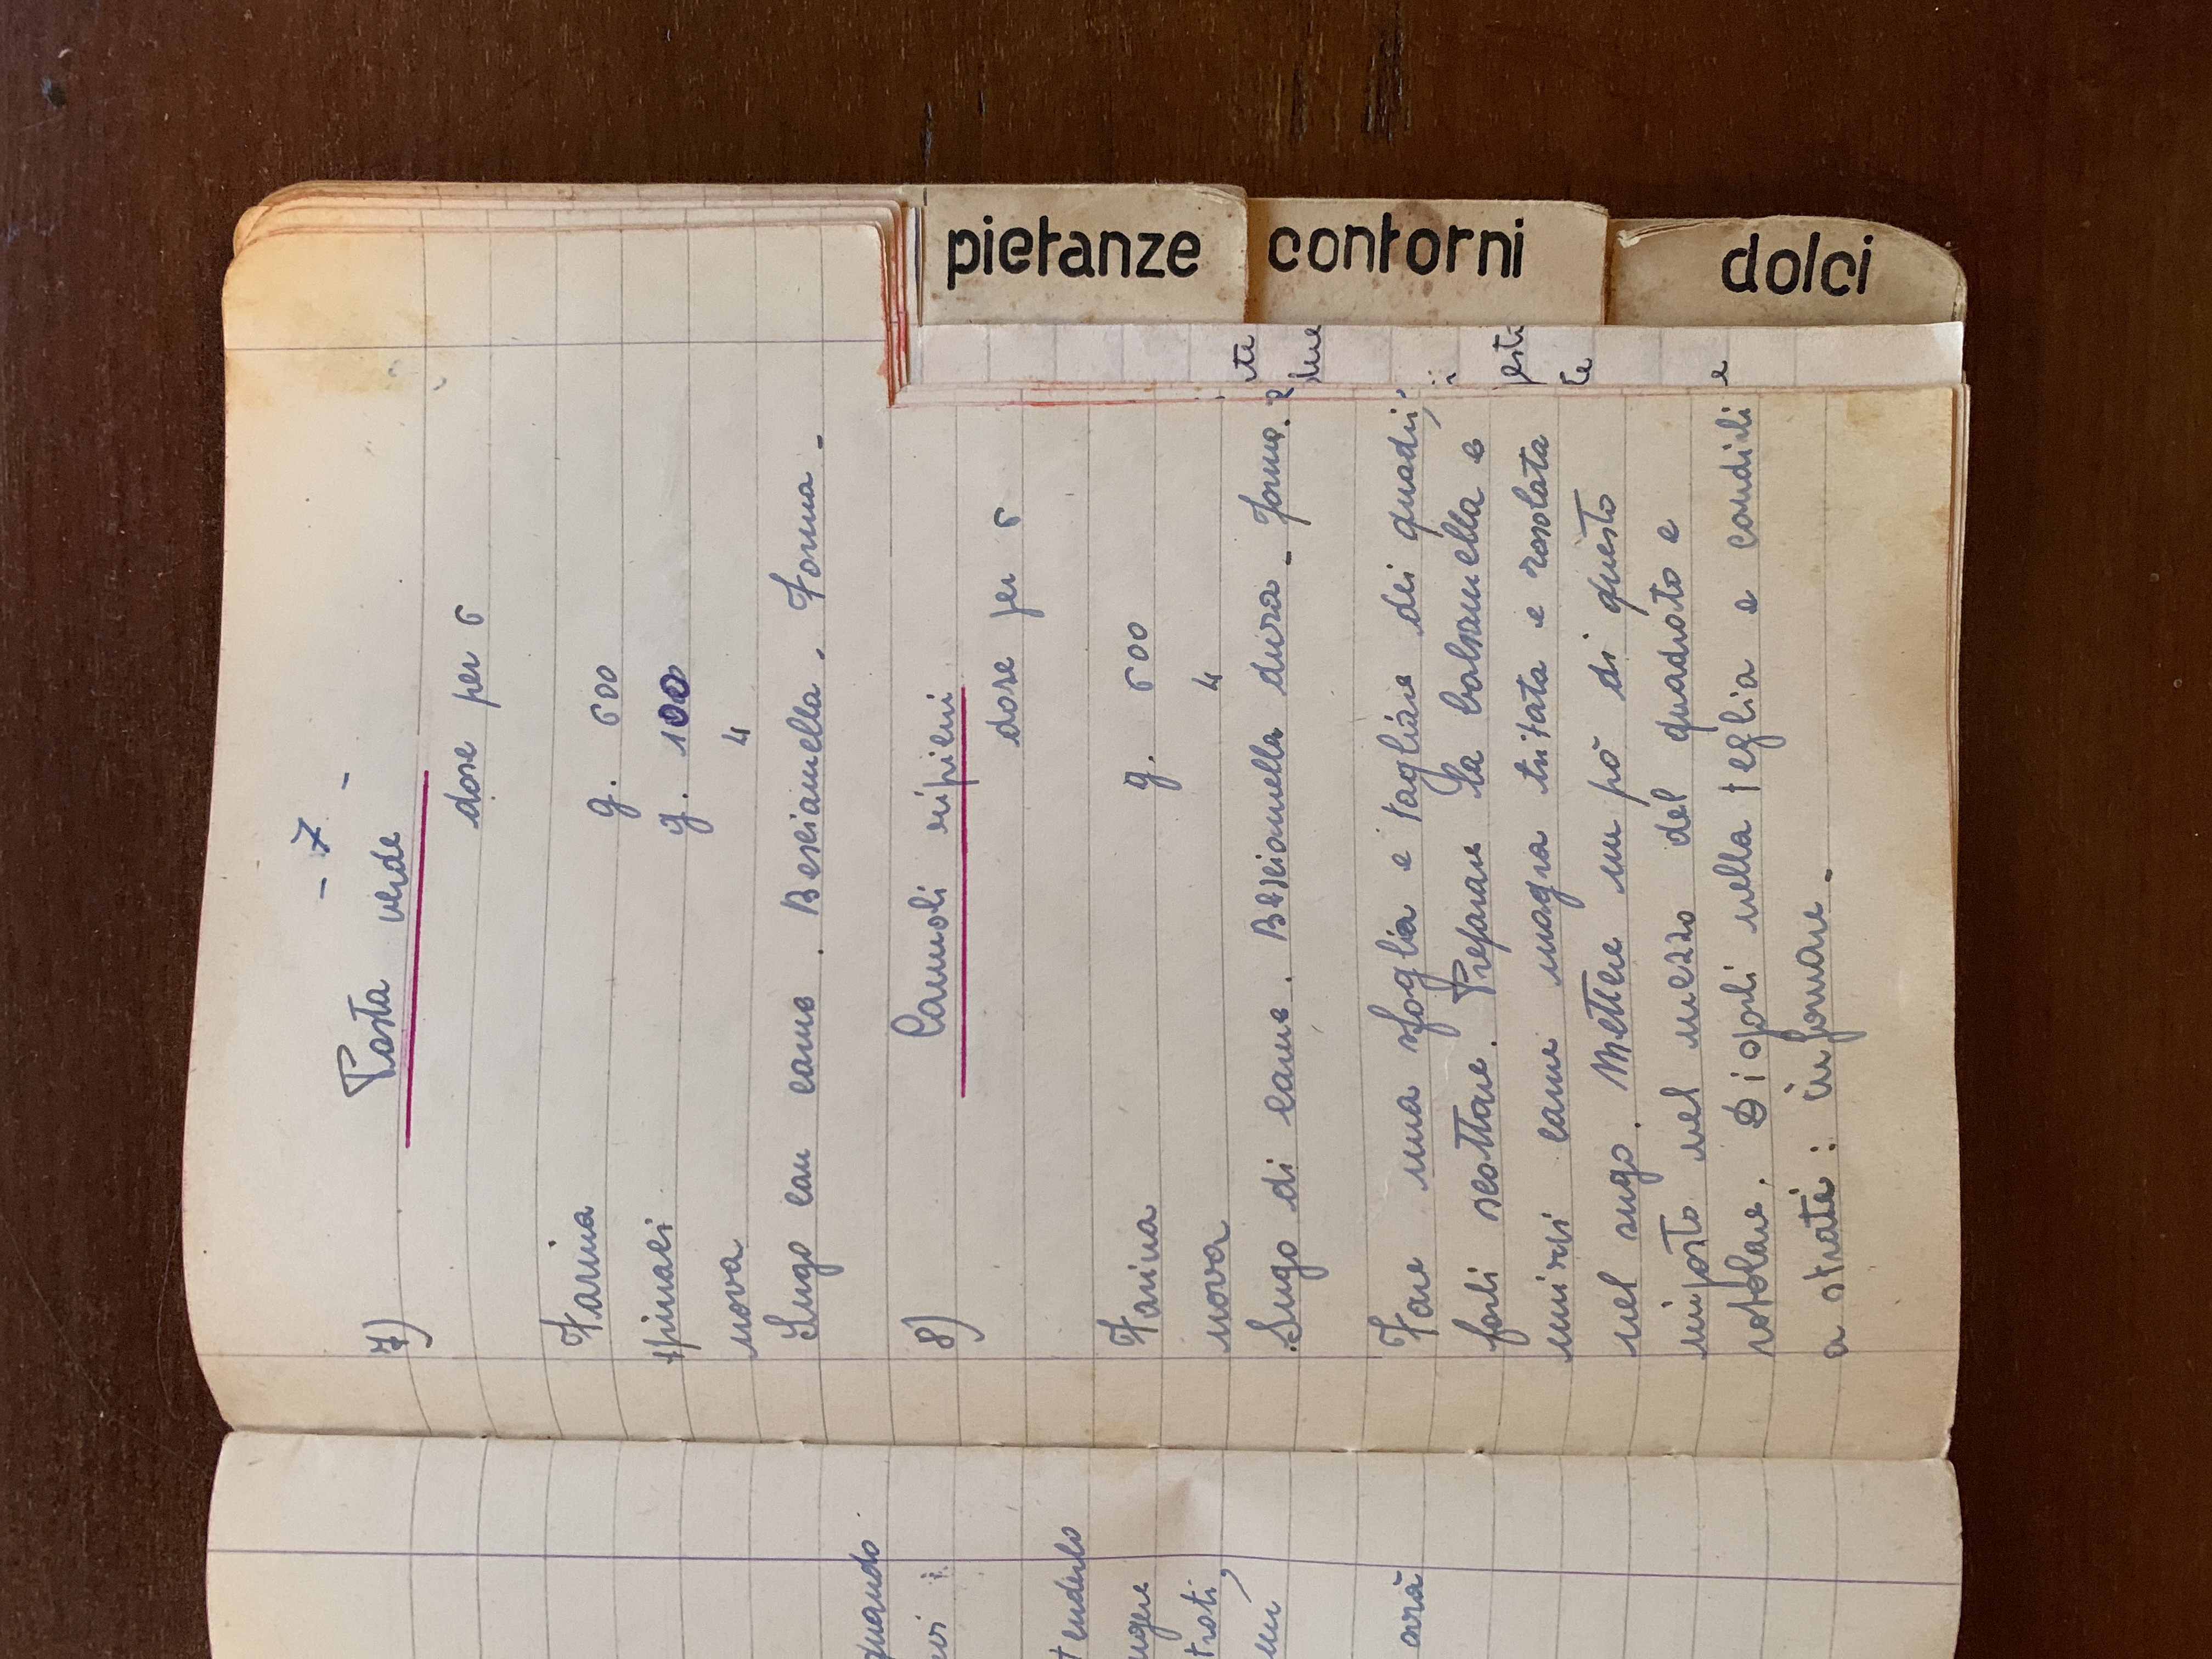 quando
tenderlo
ngere
trati,
avrà
- 7 -
7) Pasta verde
dose per 6
Farina g. 600
spinaci g. 100
uova 4
Sugo con carne . Besciamella . Forma -
8) Cannoli ripieni
dose per 6
Farina g. 600
uova 4
Sugo di carne . Besciamella dura - forma.
Fare una sfoglia e tagliare dei quadri,
farli scottare. Preparare la balsamella e
unirvi carne magra tritata e rosolata
nel sugo. Mettere un pò di questo
imposto nel mezzo del quadrato e
rotolare. Disporli nella teglia e condirli
a strati : infornare -
te
due
gesti
te
e
pietanze
contorni
dolci